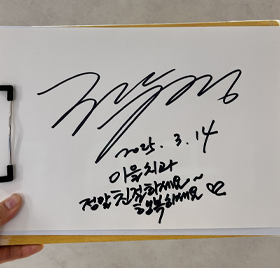 2025. 3. 14
이을치과
정말 친절하세요~
행복하세요♡